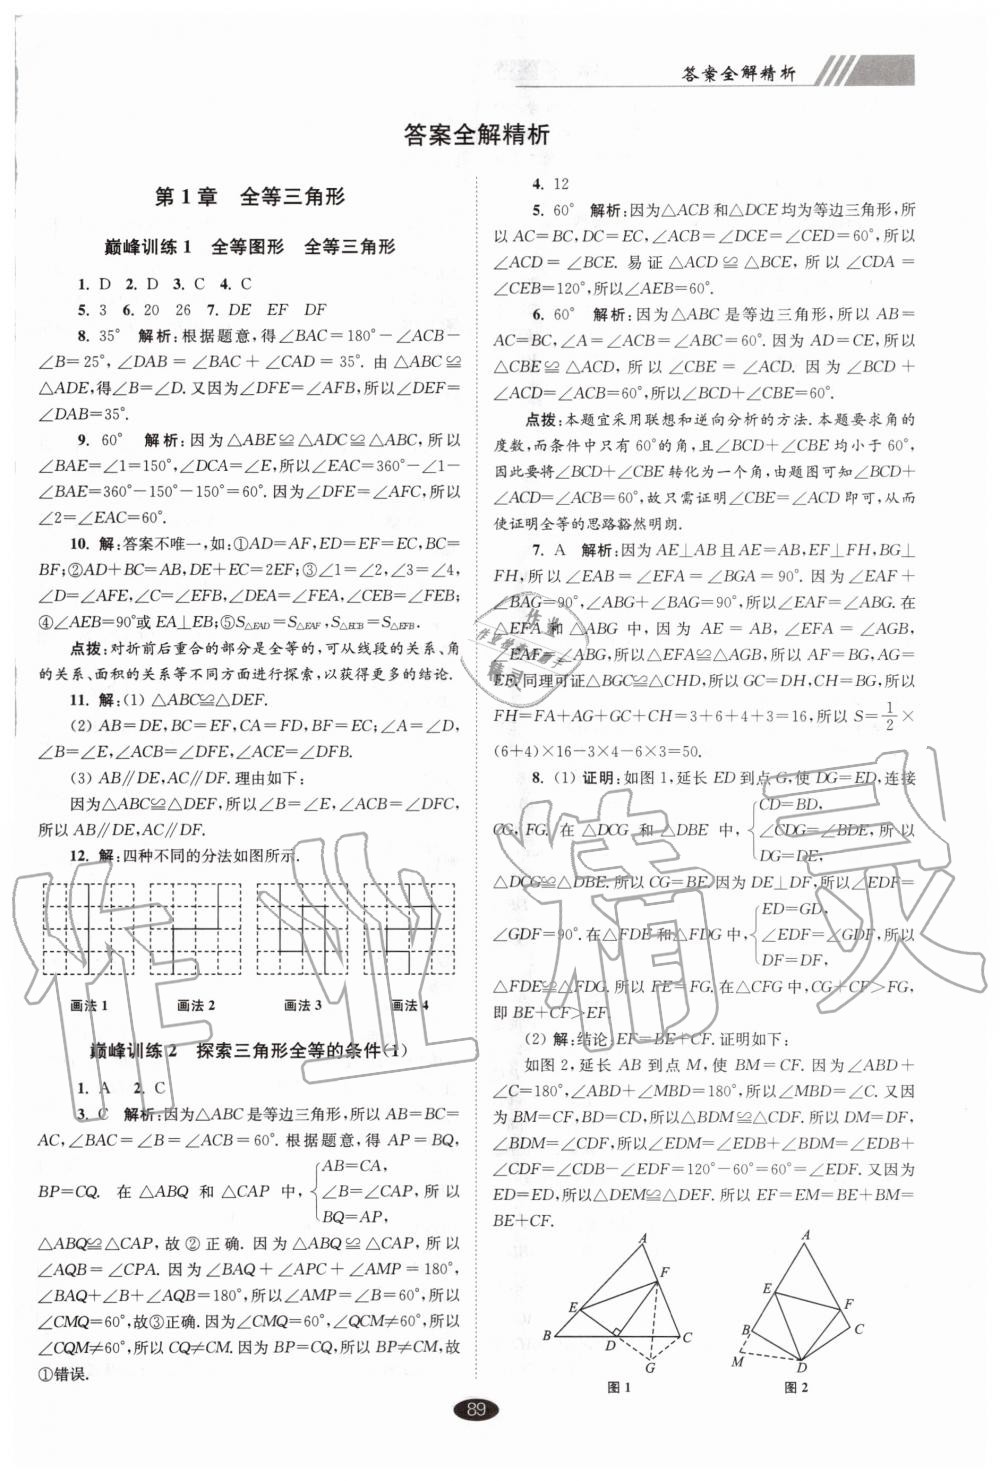 答案全解精析
答案全解精析
第1章 全等三角形
巅峰训练1 全等图形 全等三角形
1. D 2. D 3. C 4. C
5. 3 6. 20 26 7. DE EF DF
8. 35° 解析:根据题意,得∠BAC=180°-∠ACB-
∠B=25°,∠DAB=∠BAC+∠CAD=35°.由△ABC≌
△ADE,得∠B=∠D.又因为∠DFE=∠AFB,所以∠DEF=
∠DAB=35°.
9. 60° 解析:因为△ABE≌△ADC≌△ABC,所以
∠BAE=∠1=150°,∠DCA=∠E,所以∠EAC=360°-∠1-
∠BAE=360°-150°-150°=60°.因为∠DFE=∠AFC,所以
∠2=∠EAC=60°.
10. 解:答案不唯一,如:①AD=AF,ED=EF=EC,BC=
BF;②AD+BC=AB,DE+EC=2EF;③∠1=∠2,∠3=∠4,
∠D=∠AFE,∠C=∠EFB,∠DEA=∠FEA,∠CEB=∠FEB;
④∠AEB=90°或EA⊥EB;⑤S△EAD=S△EAF,S△ECB=S△EFB.
点拨:对折前后重合的部分是全等的,可从线段的关系、角
的关系、面积的关系等不同方面进行探索,以获得更多的结论.
11. 解:(1) △ABC≌△DEF.
(2) AB=DE,BC=EF,CA=FD,BF=EC;∠A=∠D,
∠B=∠E,∠ACB=∠DFE,∠ACE=∠DFB.
(3) AB∥DE,AC∥DF.理由如下:
因为△ABC≌△DEF,所以∠B=∠E,∠ACB=∠DFC,
所以AB∥DE,AC∥DF.
12. 解:四种不同的分法如图所示.
画法1 画法2 画法3 画法4
巅峰训练2 探索三角形全等的条件(1)
1. A 2. C
3. C 解析:因为△ABC是等边三角形,所以AB=BC=
AC,∠BAC=∠B=∠ACB=60°.根据题意,得AP=BQ,
AB=CA,
BP=CQ.在△ABQ和△CAP中,∠B=∠CAP,所以
BQ=AP,
△ABQ≌△CAP,故②正确.因为△ABQ≌△CAP,所以
∠AQB=∠CPA.因为∠BAQ+∠APC+∠AMP=180°,
∠BAQ+∠B+∠AQB=180°,所以∠AMP=∠B=60°,所以
∠CMQ=60°,故③正确.因为∠CMQ=60°,∠QCM≠60°,所以
∠CQM≠60°,所以CQ≠CM.因为BP=CQ,所以BP≠CM,故
①错误.
4. 12
5. 60° 解析:因为△ACB和△DCE均为等边三角形,所
以AC=BC,DC=EC,∠ACB=∠DCE=∠CED=60°,所以
∠ACD=∠BCE.易证△ACD≌△BCE,所以∠CDA=
∠CEB=120°,所以∠AEB=60°.
6. 60° 解析:因为△ABC是等边三角形,所以AB=
AC=BC,∠A=∠ACB=∠ABC=60°.因为AD=CE,所以
△CBE≌△ACD,所以∠CBE=∠ACD.因为∠BCD+
∠ACD=∠ACB=60°,所以∠BCD+∠CBE=60°.
点拨:本题宜采用联想和逆向分析的方法.本题要求角的
度数,而条件中只有60°的角,且∠BCD+∠CBE均小于60°,
因此要将∠BCD+∠CBE转化为一个角,由题图可知∠BCD+
∠ACD=∠ACB=60°,故只需证明∠CBE=∠ACD即可,从而
使证明全等的思路豁然明朗.
7. A 解析:因为AE⊥AB且AE=AB,EF⊥FH,BG⊥
FH,所以∠EAB=∠EFA=∠BGA=90°.因为∠EAF+
∠BAG=90°,∠ABG+∠BAG=90°,所以∠EAF=∠ABG.在
△EFA和△ABG中,因为AE=AB,∠EFA=∠AGB,
∠EAF=∠ABG,所以△EFA≌△ABG.所以AF=BG,AG=
EF.同理可证△BGC≌△CHD,所以GC=DH,CH=BG,所以
FH=FA+AG+GC+CH=3+6+4+3=16,所以S=1/2×
(6+4)×16-3×4-6×3=50.
8. (1) 证明:如图1,延长ED到点G,使DG=ED,连接
CD=BD,
CG,FG.在△DCG和△DBE中,∠CDG=∠BDE,所以
DG=DE,
△DCG≌△DBE.所以CG=BE.因为DE⊥DF,所以∠EDF=
ED=GD,
∠GDF=90°.在△FDE和△FDG中,∠EDF=∠GDF,所以
DF=DF,
△FDE≌△FDG.所以FE=FG.在△CFG中,CG+CF>FG,
即BE+CF>EF.
(2) 解:结论:EF=BE+CF.证明如下:
如图2,延长AB到点M,使BM=CF.因为∠ABD+
∠C=180°,∠ABD+∠MBD=180°,所以∠MBD=∠C.又因
为BM=CF,BD=CD,所以△BDM≌△CDF.所以DM=DF,
∠BDM=∠CDF,所以∠EDM=∠EDB+∠BDM=∠EDB+
∠CDF=∠CDB-∠EDF=120°-60°=60°=∠EDF.又因为
ED=ED,所以△DEM≌△DEF.所以EF=EM=BE+BM=
BE+CF.
A
F
E
B
D
C
G
图1
A
E
F
B
C
M
D
图2
89
作业精灵